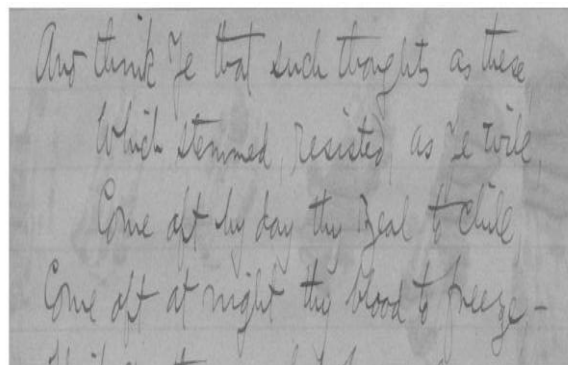 And think Ye that such thoughts as these
Which stemmed, resisted, as Ye will,
Come oft by day thy zeal to chill,
Come oft at night thy blood to freeze, –